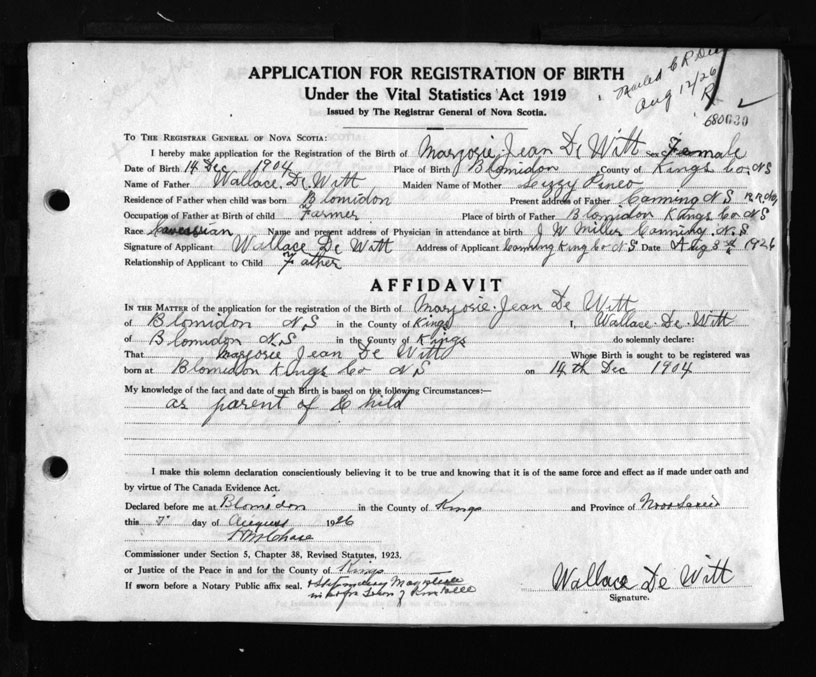 APPLICATION FOR REGISTRATION OF BIRTH
Under the Vital Statistics Act 1919
Issued by The Registrar General of Nova Scotia.
Mailed C R Dec
Aug 12/26
680030
TO THE REGISTRAR GENERAL OF NOVA SCOTIA:
I hereby make application for the Registration of the Birth of Marjorie Jean De Witt Sex Female
Date of Birth 14 Dec 1904 Place of Birth Blomidon County of Kings Co. N S
Name of Father Wallace De Witt Maiden Name of Mother Lizzy Pineo
Residence of Father when child was born Blomidon Present address of Father Canning N S
Occupation of Father at Birth of child Farmer Place of birth of Father Blomidon Kings Co N S
Race Name and present address of Physician in attendance at birth J W Miller Canning. N. S
Signature of Applicant Wallace De Witt Address of Applicant Canning King Co N S. Date Aug 3rd 1926
Relationship of Applicant to Child Father
AFFIDAVIT
IN THE MATTER of the application for the registration of the Birth of Marjorie Jean De Witt
of Blomidon N S in the County of Kings I, Wallace De Witt
of Blomidon N. S in the County of Kings do solemnly declare:
That Marjorie Jean De Witt Whose Birth is sought to be registered was
born at Blomidon Kings Co N S on 14th Dec 1904
My knowledge of the fact and date of such Birth is based on the following Circumstances:—
as parent of Child
I make this solemn declaration conscientiously believing it to be true and knowing that it is of the same force and effect as if made under oath and
by virtue of The Canada Evidence Act.
Declared before me at Blomidon in the County of Kings and Province of Nova Scotia
this day of August 1926
Commissioner under Section 5, Chapter 38, Revised Statutes, 1923.
or Justice of the Peace in and for the County of Kings
If sworn before a Notary Public affix seal. Stipendiary Magistrate
in & for Town of Kentville
Wallace De Witt
Signature.